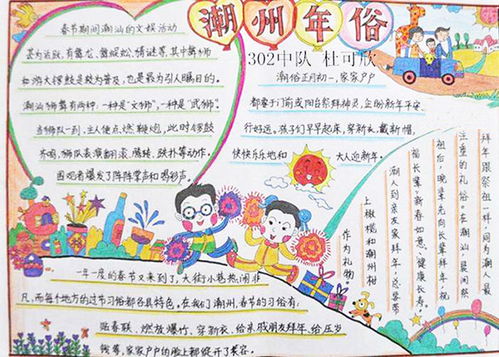 潮州年俗
302中队 杜可欣
春节期间潮汕的文娱活动
甚为活跃,有舞龙、舞蜈蚣、猜谜等,其中舞狮
和游大锣鼓是较为普及,也是最为引人瞩目的。
潮汕狮舞有两种,一种是“文狮”,一种是“武狮”。
当狮队一到,主人便点燃鞭炮,此时锣鼓
齐鸣,狮队表演翻滚、腾转、扑打等动作。
围观者爆发了阵阵掌声和喝彩声。
潮俗正月初一,家家户户
都要于门前或阳台祭拜神灵,企盼新年平安
行好运。孩子们早早起床,穿新衣、戴新帽,
快快乐乐地和 大人迎新年。
拜年跟祭祖一样,同为潮人最
注重的礼俗,在潮汕,晨间祭
祖后,晚辈先向长辈拜年,
祝长辈新春如意、健康长寿。
潮人到亲友家拜年,总要带
上橄榄和潮州柑
作为礼物
一年一度的春节又来到了,大街小巷热闹非
凡,而每个地方的过节习俗都各具特色。在我们潮州,春节的习俗有:
贴春联、燃放爆竹、穿新衣、给亲戚朋友拜年、给压岁
钱等,家家户户的脸上都绽开了笑容。